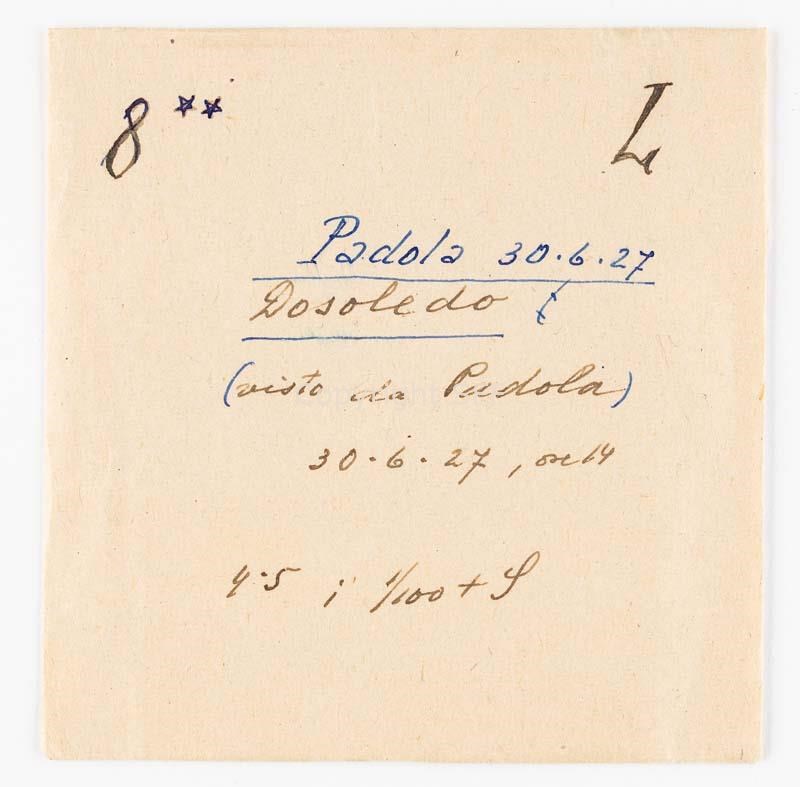 8 ** L
Padola 30.6.27
Dosoledo
(visto da Padola)
30.6.27, ore 14
4.5 ; 1/100 + S